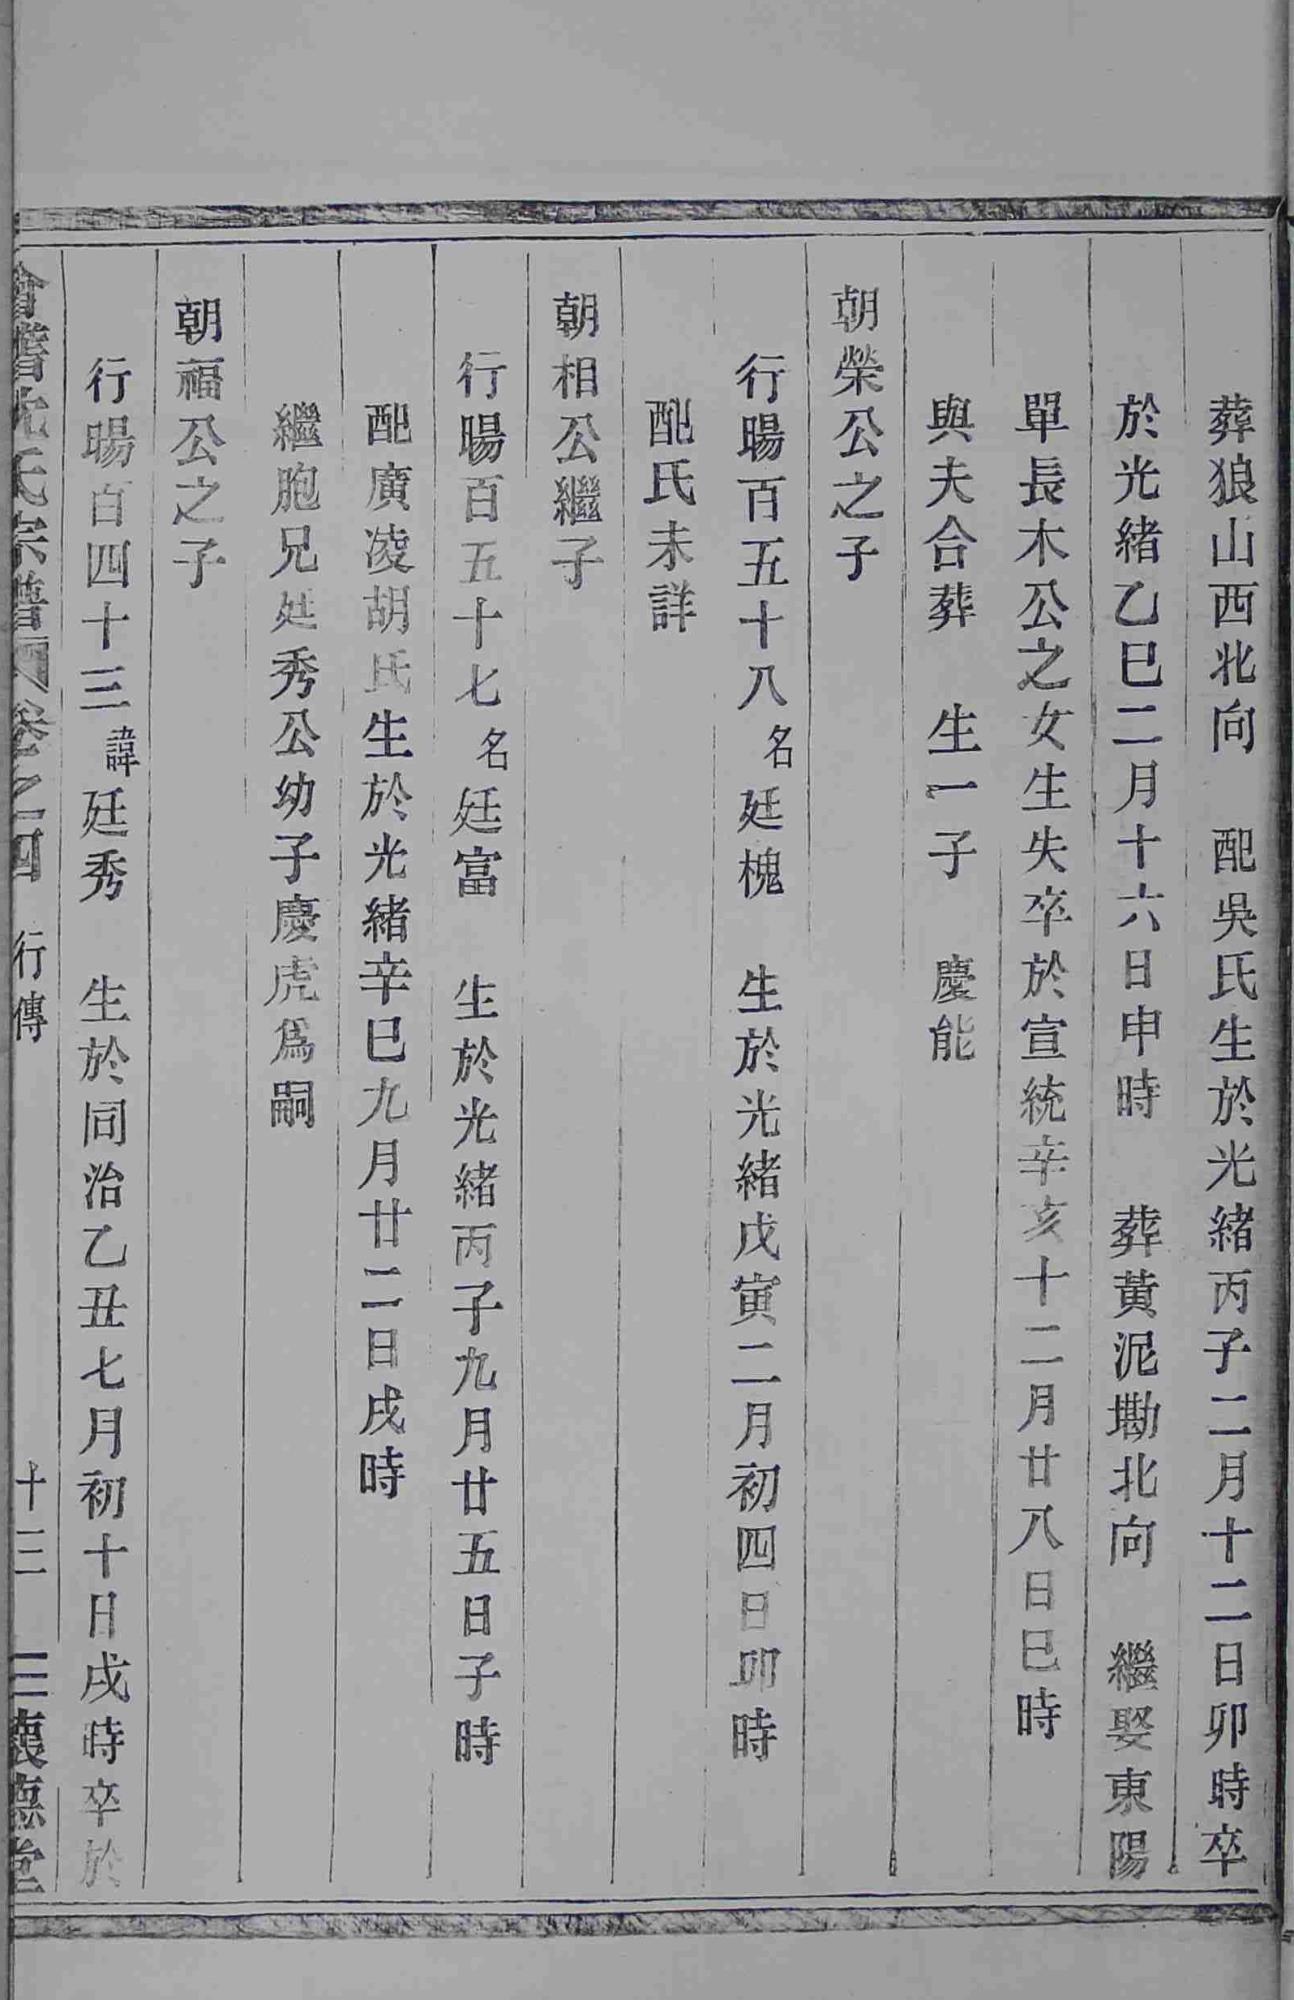 葬狼山西北向　配吳氏生於光緒丙子二月十二日卯時卒
於光緒乙巳二月十六日申時　葬黃泥墈北向　繼娶東陽
單長木公之女生失卒於宣統辛亥十二月廿八日巳時
與夫合葬　生一子　慶能
朝榮公之子
行暘百五十八名廷槐　生於光緒戊寅二月初四日卯時
配氏未詳
朝相公繼子
行暘百五十七名廷富　生於光緒丙子九月廿五日子時
配廣凌胡氏生於光緒辛巳九月廿二日戌時
繼胞兄廷秀公幼子慶虎爲嗣
朝福公之子
行暘百四十三諱廷秀　生於同治乙丑七月初十日戌時卒於
會稽沈氏宗譜　卷之四　行傳　十三　三懷德堂